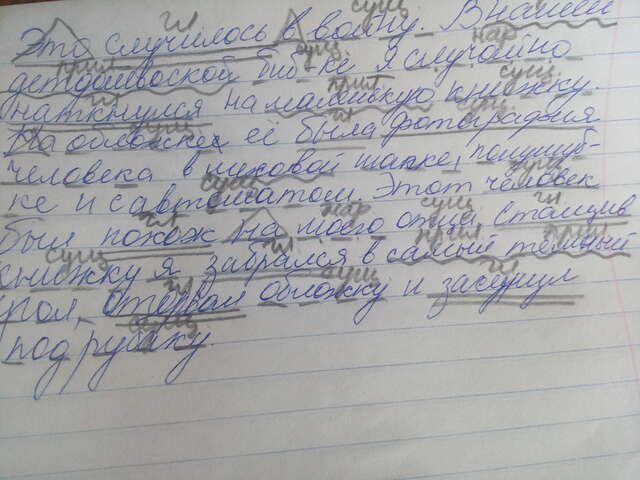 Это случилось в войну. В нашей
детдомовской биб-ке я случайно
наткнулся на маленькую книжку
На обложке её была фотография
человека в меховой шапке, полушуб-
ке и с автоматом. Этот человек
был похож на моего отца. Стащив
книжку я забрался в самый тёмный
угол, оторвал обложку и засунул
под рубаху.